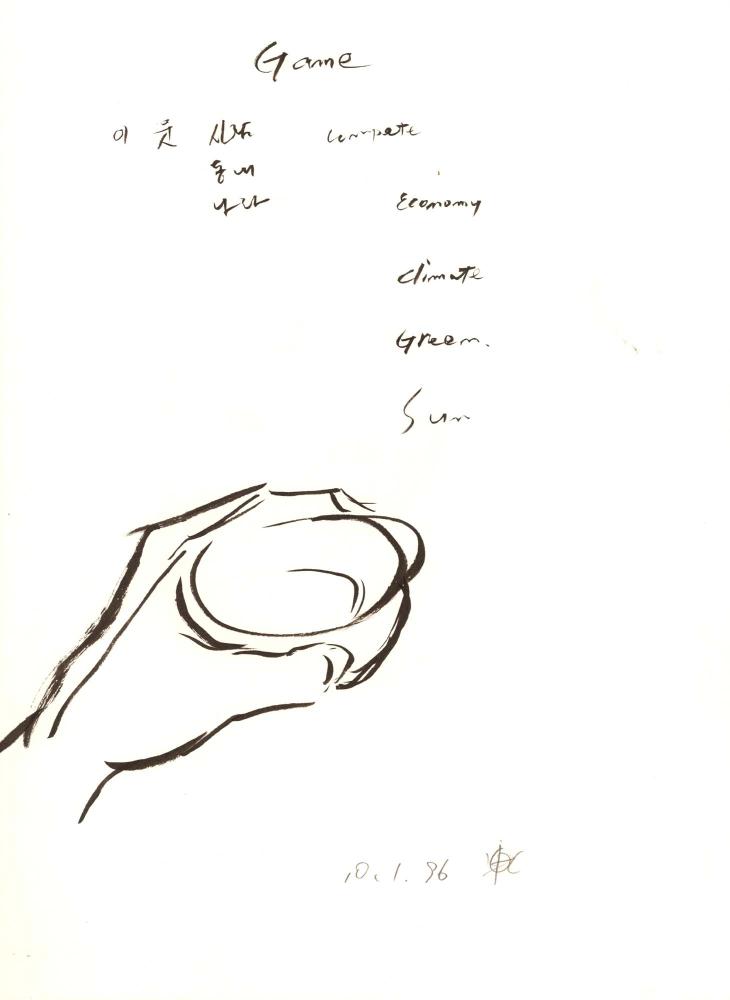 Game
이웃 사람 compete
동네
나라 Economy
Climate
Green.
Sun
10. 1. 96